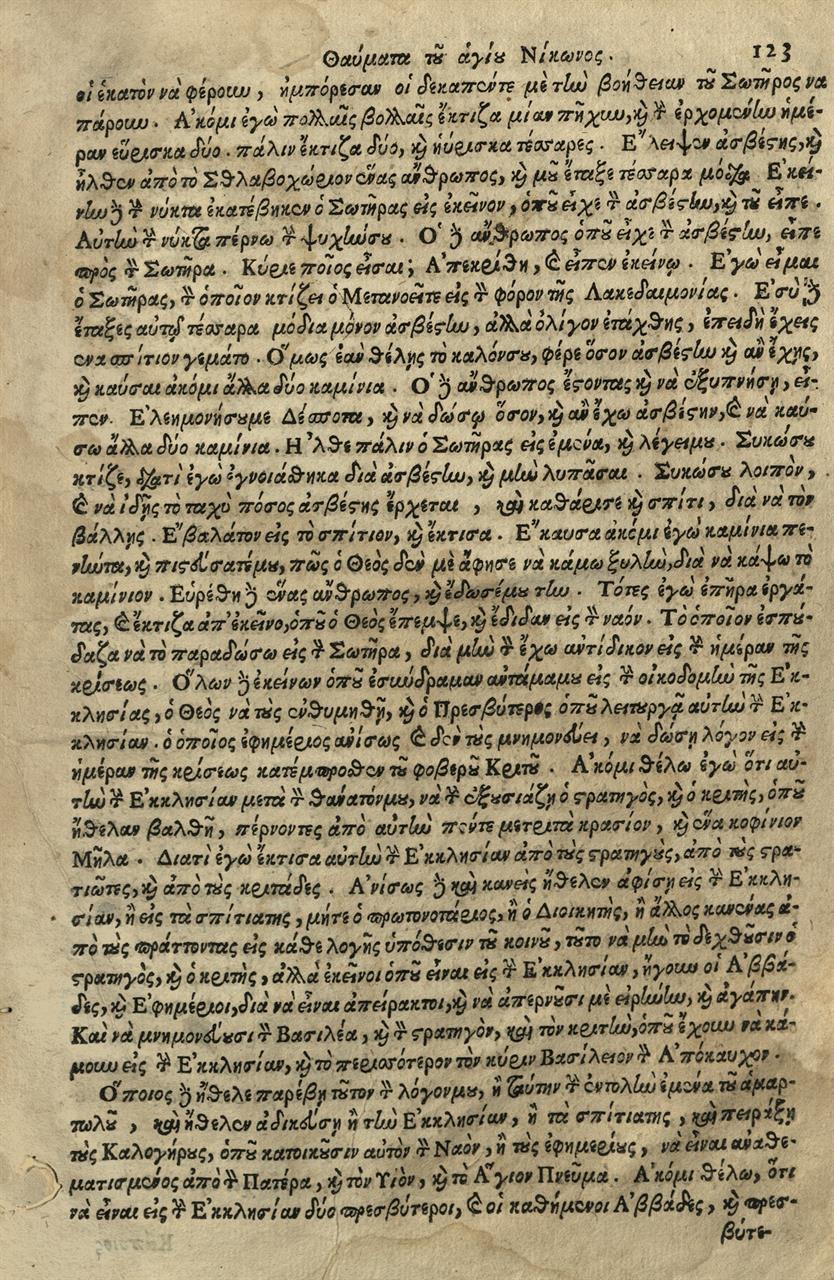 Θαύματα τοῦ ἁγίου Νίκωνος. 123
οἱ ἑκατὸν νὰ φέρουν, ἠμπόρεσαν οἱ δεκαπέντε μὲ τὴν βοήθειαν τοῦ Σωτῆρος να
πάρουν. Ἀκόμι ἐγὼ πολλαῖς βολλαῖς ἔκτιζα μίαν πῆχυν, καὶ τὴν ἐρχομένην ἡμέ-
ραν εὕρισκα δύο. πάλιν ἔκτιζα δύο, καὶ ηὕρισκα τέσσαρες. Ἔλειψεν ἀσβέστης, καὶ
ἦλθεν ἀπὸ τὸ Σθλαβοχώριον ἕνας ἄνθρωπος, καὶ μοῦ ἔταξε τέσσαρα μόδια. Ἐκεί-
νην δὲ τὴν νύκτα ἐκατέβηκεν ὁ Σωτῆρας εἰς ἐκεῖνον, ὁποῦ εἶχε τὴν ἀσβέστην, καὶ τοῦ εἶπε.
Αὐτὴν τὴν νύκτα πέρνω τὴν ψυχήνσου. Ὁ δὲ ἄνθρωπος ὁποῦ εἶχε τὴν ἀσβέστην, εἶπε
πρὸς τὸν Σωτῆρα. Κύριε ποῖος εἶσαι; Ἀπεκρίθη, καὶ εἶπεν ἐκείνῳ. Ἐγὼ εἶμαι
ὁ Σωτῆρας, τὸν ὁποῖον κτίζει ὁ Μετανοεῖτε εἰς τὸν φόρον τῆς Λακεδαιμονίας. Ἐσὺ δὲ
ἔταξες αὐτῷ τέσσαρα μόδια μόνον ἀσβέστην, ἀλλὰ ὀλίγον ἐτάχθης, ἐπειδὴ ἔχεις
ἕνα σπίτιον γεμάτο. Ὅμως ἐὰν θέλῃς τὸ καλόνσου, φέρε ὅσον ἀσβέστην καὶ ἂν ἔχῃς,
καὶ καῦσαι ἀκόμι ἄλλα δύο καμίνια. Ὁ δὲ ἄνθρωπος ἔστοντας καὶ νὰ ἐξυπνήσῃ, εἶ-
πεν. Ἐλεημονήσουμε Δέσποτα, καὶ νὰ δώσω ὅσον, καὶ ἂν ἔχω ἀσβέστην, καὶ νὰ καύ-
σω ἄλλα δύο καμίνια. Ἦλθε πάλιν ὁ Σωτῆρας εἰς ἐμένα, καὶ λέγειμου. Συκώσου
κτίζε, διατὶ ἐγὼ ἐγνοιάθηκα διὰ ἀσβέστην, καὶ μὴν λυπᾶσαι. Συκώσου λοιπὸν,
καὶ νὰ ἰδῇς τὸ ταχὺ πόσος ἀσβέστης ἔρχεται, καὶ καθάρισε καὶ σπίτι, διὰ νὰ τὸν
βάλλῃς. Ἔβαλάτον εἰς τὸ σπίτιον, καὶ ἔκτισα. Ἔκαυσα ἀκόμι ἐγὼ καμίνια πε-
νῆντα, καὶ πιστεύσατέμου, πῶς ὁ Θεὸς δὲν μὲ ἄφησε νὰ κάμω ξυλὴν, διὰ νὰ κάψω τὸ
καμίνιον. Εὑρέθη δὲ ἕνας ἄνθρωπος, καὶ ἔδωσέμου την. Τότες ἐγὼ ἐπῆρα ἐργά-
τας, καὶ ἔκτιζα ἀπ' ἐκεῖνο, ὁποῦ ὁ Θεὸς ἔπεμψε, καὶ ἔδιδαν εἰς τὸν ναόν. Τὸ ὁποῖον ἐσπού-
δαζα νὰ τὸ παραδώσω εἰς τὸν Σωτῆρα, διὰ μὴν τὸν ἔχω ἀντίδικον εἰς τὴν ἡμέραν τῆς
κρίσεως. Ὅλων δὲ ἐκείνων ὁποῦ ἐσυνέδραμαν ἀντάμαμου εἰς τὴν οἰκοδομὴν τῆς Ἐκ-
κλησίας, ὁ Θεὸς νὰ τοὺς ἐνθυμηθῇ, καὶ ὁ Πρεσβύτερος ὁποῦ λειτουργᾷ αὐτὴν τὴν Ἐκ-
κλησίαν. ὁ ὁποῖος ἐφημέριος ἀνίσως καὶ δὲν τοὺς μνημονεύει, νὰ δώσῃ λόγον εἰς τὴν
ἡμέραν τῆς κρίσεως κατέμπροθεν τοῦ φοβεροῦ Κριτοῦ. Ἀκόμι θέλω ἐγὼ ὅτι αὐ-
τὴν τὴν Ἐκκλησίαν μετὰ τὸν θάνατόνμου, νὰ τὴν ἐξουσιάζῃ ὁ στρατηγὸς, καὶ ὁ κριτὴς, ὁποῦ
ἤθελαν βαλθῆ, πέρνοντες ἀπὸ αὐτὴν πέντε μετριτὰ κρασίον, καὶ ἕνα κοφίνιον
Μῆλα. Διατὶ ἐγὼ ἔκτισα αὐτὴν τὴν Ἐκκλησίαν ἀπὸ τοὺς στρατηγοὺς, ἀπὸ τοὺς στρα-
τιῶτες, καὶ ἀπὸ τοὺς κριτάδες. Ἀνίσως δὲ καὶ κανεὶς ἤθελεν ἀφίσῃ εἰς τὴν Ἐκκλη-
σίαν, ἢ εἰς τὰ σπίτιατης, μήτε ὁ πρωτονοτάριος, ἢ ὁ Διοικητὴς, ἢ ἄλλος κανένας ἀ-
πὸ τοὺς πράττοντας εἰς κάθε λογῆς ὑπόθεσιν τοῦ κοινοῦ, τοῦτο νὰ μὴν τὸ δεχθοῦσιν ὁ
στρατηγὸς, καὶ ὁ κριτὴς, ἀλλὰ ἐκεῖνοι ὁποῦ εἶναι εἰς τὴν Ἐκκλησίαν, ἤγουν οἱ Ἀββά-
δες, καὶ Ἐφημέριοι, διὰ νὰ εἶναι ἀπείρακτοι, καὶ νὰ ἀπερνοῦσι μὲ εἰρήνην, καὶ ἀγάπην.
Καὶ νὰ μνημονεύουσι τὸν Βασιλέα, καὶ τὸν στρατηγὸν, καὶ τὸν κριτὴν, ὁποῦ ἔχουν νὰ κά-
μουν εἰς τὴν Ἐκκλησίαν, καὶ τὸ περισσότερον τὸν κύριν Βασίλειον τὸν Ἀπόκαυχον.
Ὅποιος δὲ ἤθελε παρέβῃ τοῦτον τὸν λόγονμου, ἢ ταύτην τὴν ἐντολὴν ἐμένα τοῦ ἁμαρ-
τωλοῦ, καὶ ἤθελεν ἀδικεύσῃ ἢ τὴν Ἐκκλησίαν, ἢ τὰ σπίτιατης, καὶ πειράξῃ
τοὺς Καλογήρους, ὁποῦ κατοικοῦσιν αὐτὸν τὸν Ναὸν, ἢ τοὺς ἐφημερίους, νὰ εἶναι ἀναθε-
ματισμένος ἀπὸ τὸν Πατέρα, καὶ τὸν Υἱὸν, καὶ τὸ Ἅγιον Πνεῦμα. Ἀκόμι θέλω, ὅτι
νὰ εἶναι εἰς τὴν Ἐκκλησίαν δύο πρεσβύτεροι, καὶ οἱ καθήμενοι Ἀββάδες, καὶ πρεσ-
βύτε-